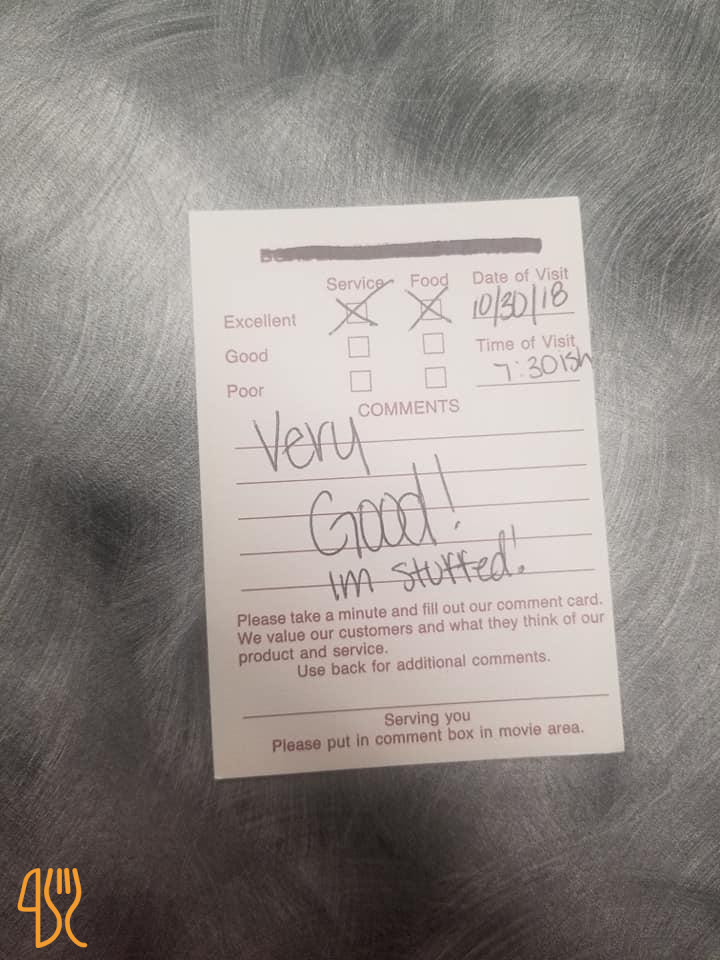 Service Food Date of Visit
Excellent 10/30/18
Good Time of Visit
7:30ish
Poor
COMMENTS
Very
Good!
Im stuffed!
Please take a minute and fill out our comment card.
We value our customers and what they think of our
product and service.
Use back for additional comments.
Serving you
Please put in comment box in movie area.